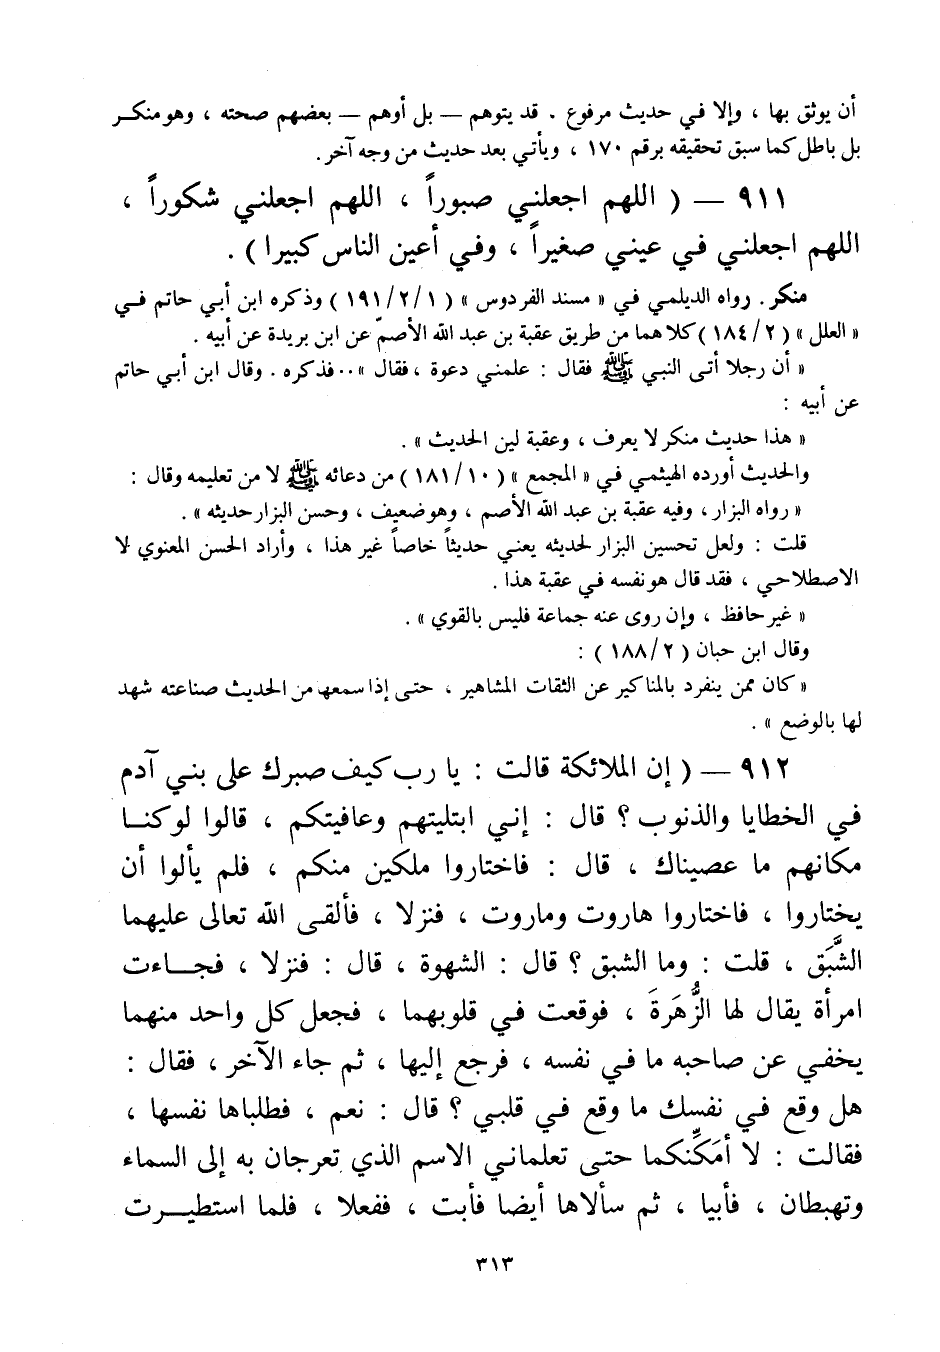 أن يوثق بها ، وإلا في حديث مرفوع . قد يتوهم — بل أوهم — بعضهم صحته ، وهو منكر
بل باطل كما سبق تحقيقه برقم ١٧٠ ، ويأتي بعد حديث من وجه آخر .
٩١١ — ( اللهم اجعلني صبوراً ، اللهم اجعلني شكوراً ،
اللهم اجعلني في عيني صغيراً ، وفي أعين الناس كبيرا ) .
منكر . رواه الديلمي في « مسند الفردوس » ( ١٩١/٢/١ ) وذكره ابن أبي حاتم في
« العلل » ( ١٨٤/٢ ) كلاهما من طريق عقبة بن عبد الله الأصمّ عن ابن بريدة عن أبيه .
« أن رجلا أتى النبي ﷺ فقال : علمني دعوة ، فقال »٠٠ فذكره . وقال ابن أبي حاتم
عن أبيه :
« هذا حديث منكر لا يعرف ، وعقبة لين الحديث » .
والحديث أورده الهيثمي في « المجمع » ( ١٨١/١٠ ) من دعائه ﷺ لا من تعليمه وقال :
« رواه البزار ، وفيه عقبة بن عبد الله الأصم ، وهو ضعيف ، وحسن البزار حديثه » .
قلت : ولعل تحسين البزار لحديثه يعني حديثاً خاصاً غير هذا ، وأراد الحسن المعنوي لا
الاصطلاحي ، فقد قال هو نفسه في عقبة هذا .
« غير حافظ ، وإن روى عنه جماعة فليس بالقوي » .
وقال ابن حبان ( ١٨٨/٢ ) :
« كان ممن ينفرد بالمناكير عن الثقات المشاهير ، حتى إذا سمعها من الحديث صناعته شهد
لها بالوضع » .
٩١٢ — ( إن الملائكة قالت : يا رب كيف صبرك على بني آدم
في الخطايا والذنوب ؟ قال : إني ابتليتهم وعافيتكم ، قالوا لو كنا
مكانهم ما عصيناك ، قال : فاختاروا ملكين منكم ، فلم يألوا أن
يختاروا ، فاختاروا هاروت وماروت ، فنزلا ، فألقى الله تعالى عليهما
الشَّبَق ، قلت : وما الشبق ؟ قال : الشهوة ، قال : فنزلا ، فجاءت
امرأة يقال لها الزُّهَرَةَ ، فوقعت في قلوبهما ، فجعل كل واحد منهما
يخفي عن صاحبه ما في نفسه ، فرجع إليها ، ثم جاء الآخر ، فقال :
هل وقع في نفسك ما وقع في قلبي ؟ قال : نعم ، فطلباها نفسها ،
فقالت : لا أمَكِّنكما حتى تعلماني الاسم الذي تعرجان به إلى السماء
وتهبطان ، فأبيا ، ثم سألاها أيضا فأبت ، ففعلا ، فلما استطيرت
٣١٣